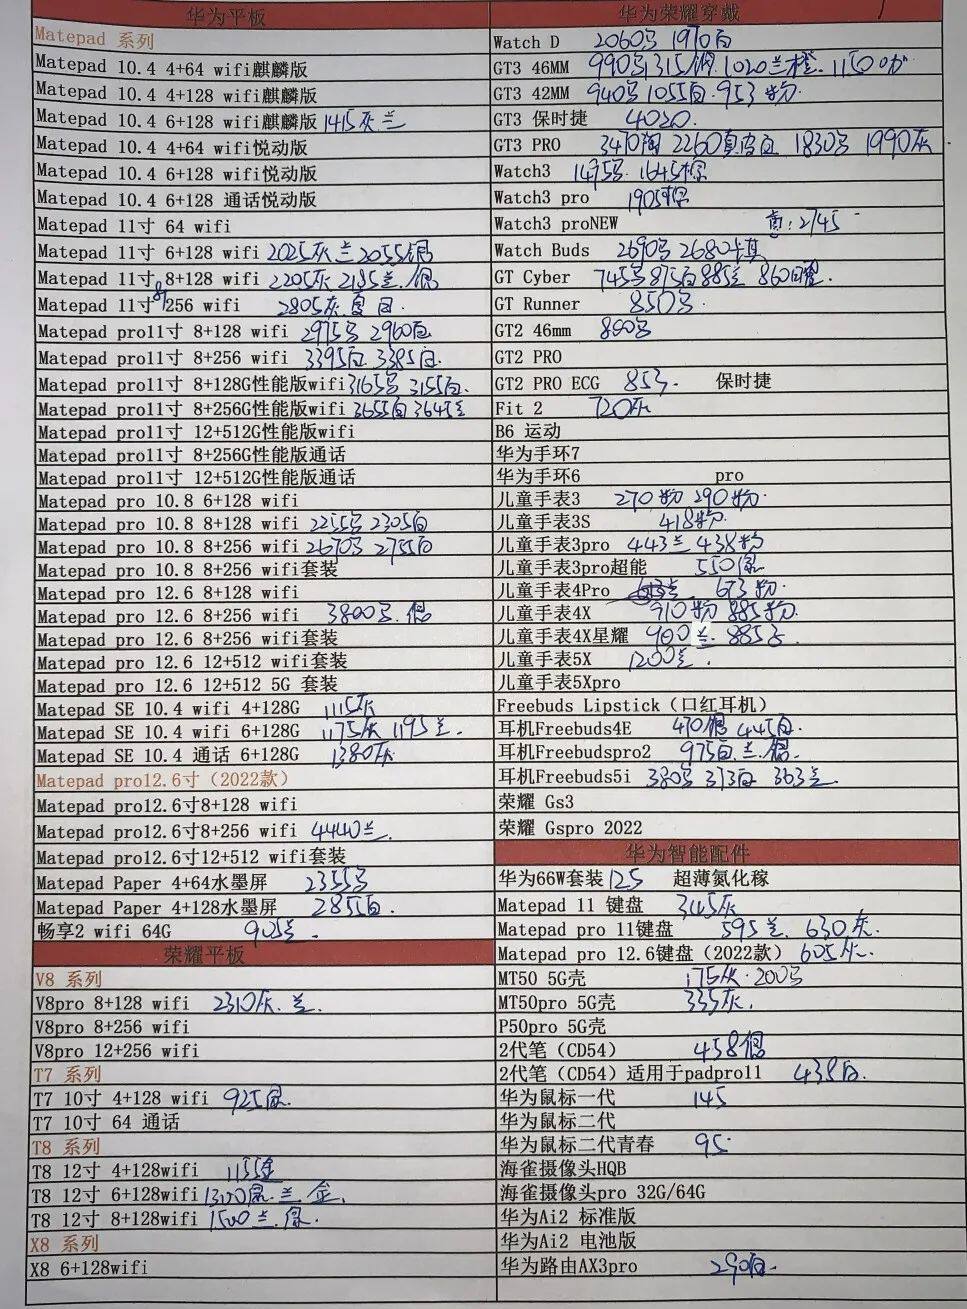 华为平板
Matepad 系列
Matepad 10.4 4+64 wifi麒麟版
Matepad 10.4 4+128 wifi麒麟版
Matepad 10.4 6+128 wifi麒麟版 1415灰 兰
Matepad 10.4 4+64 wifi悦动版
Matepad 10.4 6+128 wifi悦动版
Matepad 10.4 6+128 通话悦动版
Matepad 11寸 64 wifi
Matepad 11寸 6+128 wifi 2025灰 兰 2055银
Matepad 11寸 8+128 wifi 2205灰 2185兰. 银
Matepad 11寸 8+256 wifi 2805灰
Matepad pro11寸 8+128 wifi 2975 2960白
Matepad pro11寸 8+256 wifi 3395白 3385白.
Matepad pro11寸 8+128G性能版wifi 3165 3155白.
Matepad pro11寸 8+256G性能版wifi 3655白 3645兰
Matepad pro11寸 12+512G性能版wifi
Matepad pro11寸 8+256G性能版通话
Matepad pro11寸 12+512G性能版通话
Matepad pro 10.8 6+128 wifi
Matepad pro 10.8 8+128 wifi 2255 2305白
Matepad pro 10.8 8+256 wifi 2670 2755白
Matepad pro 10.8 8+256 wifi套装
Matepad pro 12.6 8+128 wifi
Matepad pro 12.6 8+256 wifi 3800 . 银
Matepad pro 12.6 8+256 wifi套装
Matepad pro 12.6 12+512 wifi套装
Matepad pro 12.6 12+512 5G 套装
Matepad SE 10.4 wifi 4+128G 1115灰
Matepad SE 10.4 wifi 6+128G 1175灰 1195兰.
Matepad SE 10.4 通话 6+128G 1380灰
Matepad pro12.6寸（2022款）
Matepad pro12.6寸8+128 wifi
Matepad pro12.6寸8+256 wifi 4440兰.
Matepad pro12.6寸12+512 wifi套装
Matepad Paper 4+64水墨屏 2355
Matepad Paper 4+128水墨屏 2855白.
畅享2 wifi 64G 905兰.
荣耀平板
V8 系列
V8pro 8+128 wifi 2310灰. 兰.
V8pro 8+256 wifi
V8pro 12+256 wifi
T7 系列
T7 10寸 4+128 wifi 925
T7 10寸 64 通话
T8 系列
T8 12寸 4+128wifi 1155金
T8 12寸 6+128wifi 1300 . 兰 金.
T8 12寸 8+128wifi 1500兰.
X8 系列
X8 6+128wifi
华为荣耀穿戴
Watch D 2060 1970白
GT3 46MM 990 1315钢 1020兰橙. 1150
GT3 42MM 940 1055白. 953粉
GT3 保时捷 4020.
GT3 PRO 3470陶 2260真皮 1830 1990灰
Watch3 1475 . 1645棕
Watch3 pro 1905棕
Watch3 proNEW 2745
Watch Buds 2690 2680
GT Cyber 745 875白 885兰 860
GT Runner 850
GT2 46mm 800
GT2 PRO
GT2 PRO ECG 85 . 保时捷
Fit 2 720灰
B6 运动
华为手环7
华为手环6 pro
儿童手表3 270粉 290粉.
儿童手表3S 418粉.
儿童手表3pro 443兰 438粉
儿童手表3pro超能 550银
儿童手表4Pro 673粉
儿童手表4X 910粉 885粉.
儿童手表4X星耀 900兰. 885
儿童手表5X 1200兰.
儿童手表5Xpro
Freebuds Lipstick（口红耳机）
耳机Freebuds4E 470银 445白.
耳机Freebudspro2 975白.兰.银.
耳机Freebuds5i 380 373白 363兰
荣耀 Gs3
荣耀 Gspro 2022
华为智能配件
华为66W套装 125 超薄氮化稼
Matepad 11 键盘 345灰
Matepad pro 11键盘 595兰. 630灰.
Matepad pro 12.6键盘（2022款） 605灰.
MT50 5G壳 175灰. 200
MT50pro 5G壳 335灰.
P50pro 5G壳
2代笔（CD54） 458银
2代笔（CD54）适用于padpro11 438白.
华为鼠标一代 145
华为鼠标二代
华为鼠标二代青春 95
海雀摄像头HQB
海雀摄像头pro 32G/64G
华为Ai2 标准版
华为Ai2 电池版
华为路由AX3pro 290白.